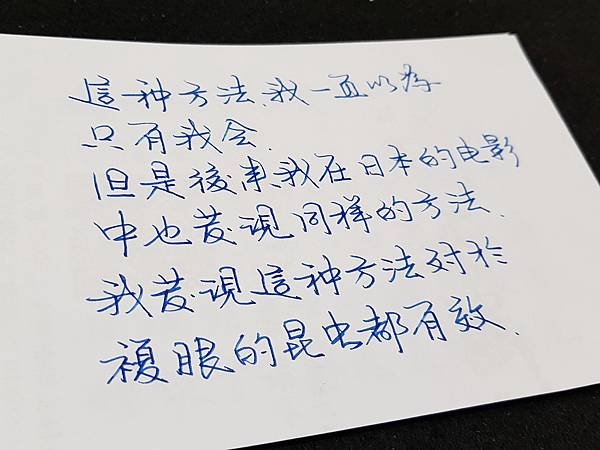 這种方法、我一直以為
只有我会.
但是後来我在日本的电影
中也发現同样的方法.
我发現這种方法对於
複眼的昆虫都有效.